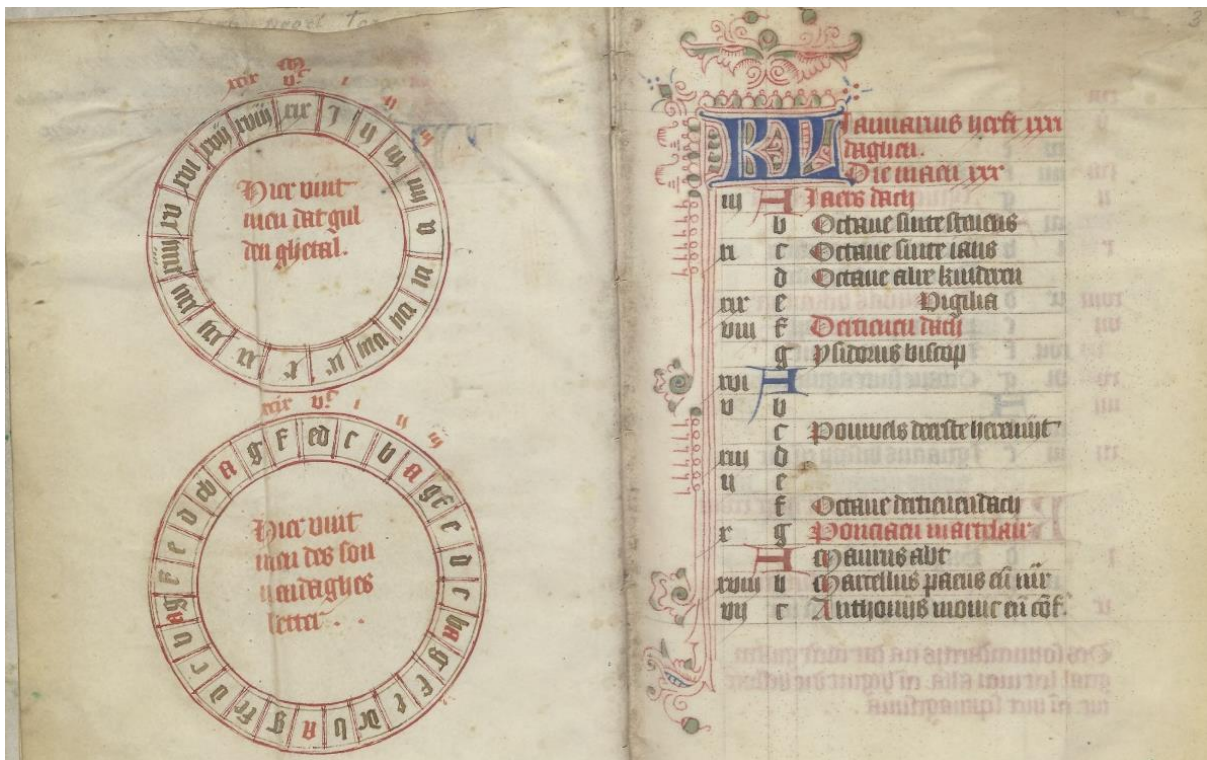 xcix vᶜ i ij iij
xix i ij iij iiij v vi vij viij ix x xi xij xiij xiiij xv xvi xvij xviij
Hier vint
men dat gul
den ghetal.
xcix vᶜ i ij iij
ed c b A gf e d c bA g f e dc b A g fe d c b Ag f e d cb A g f
Hier vint
men des son
nendaghes
letter . .
3
KL Januarius heeft xxxi
daghen.
Die maen xxx
iij A Jaers dach
b Octaue sinte steuens
xi c Octaue sinte ians
d Octaue alre kinderen
xix e Vigilia
viij f Dertienen dach
g Ysidorus biscop
xvi A
v b
c Pouwels deerste heremijt
xiij d
ij e
f Octaue dertienendach
x g Ponciaen martelaer
A Maurus abt
xviij b Marcellus paeus en mr
vij c Anthonijs monic en cōf.